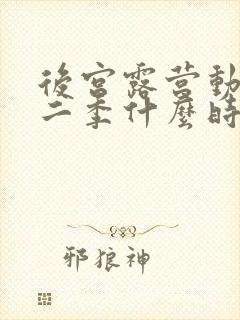 後宮露營動
二季什麼時
邪狼神